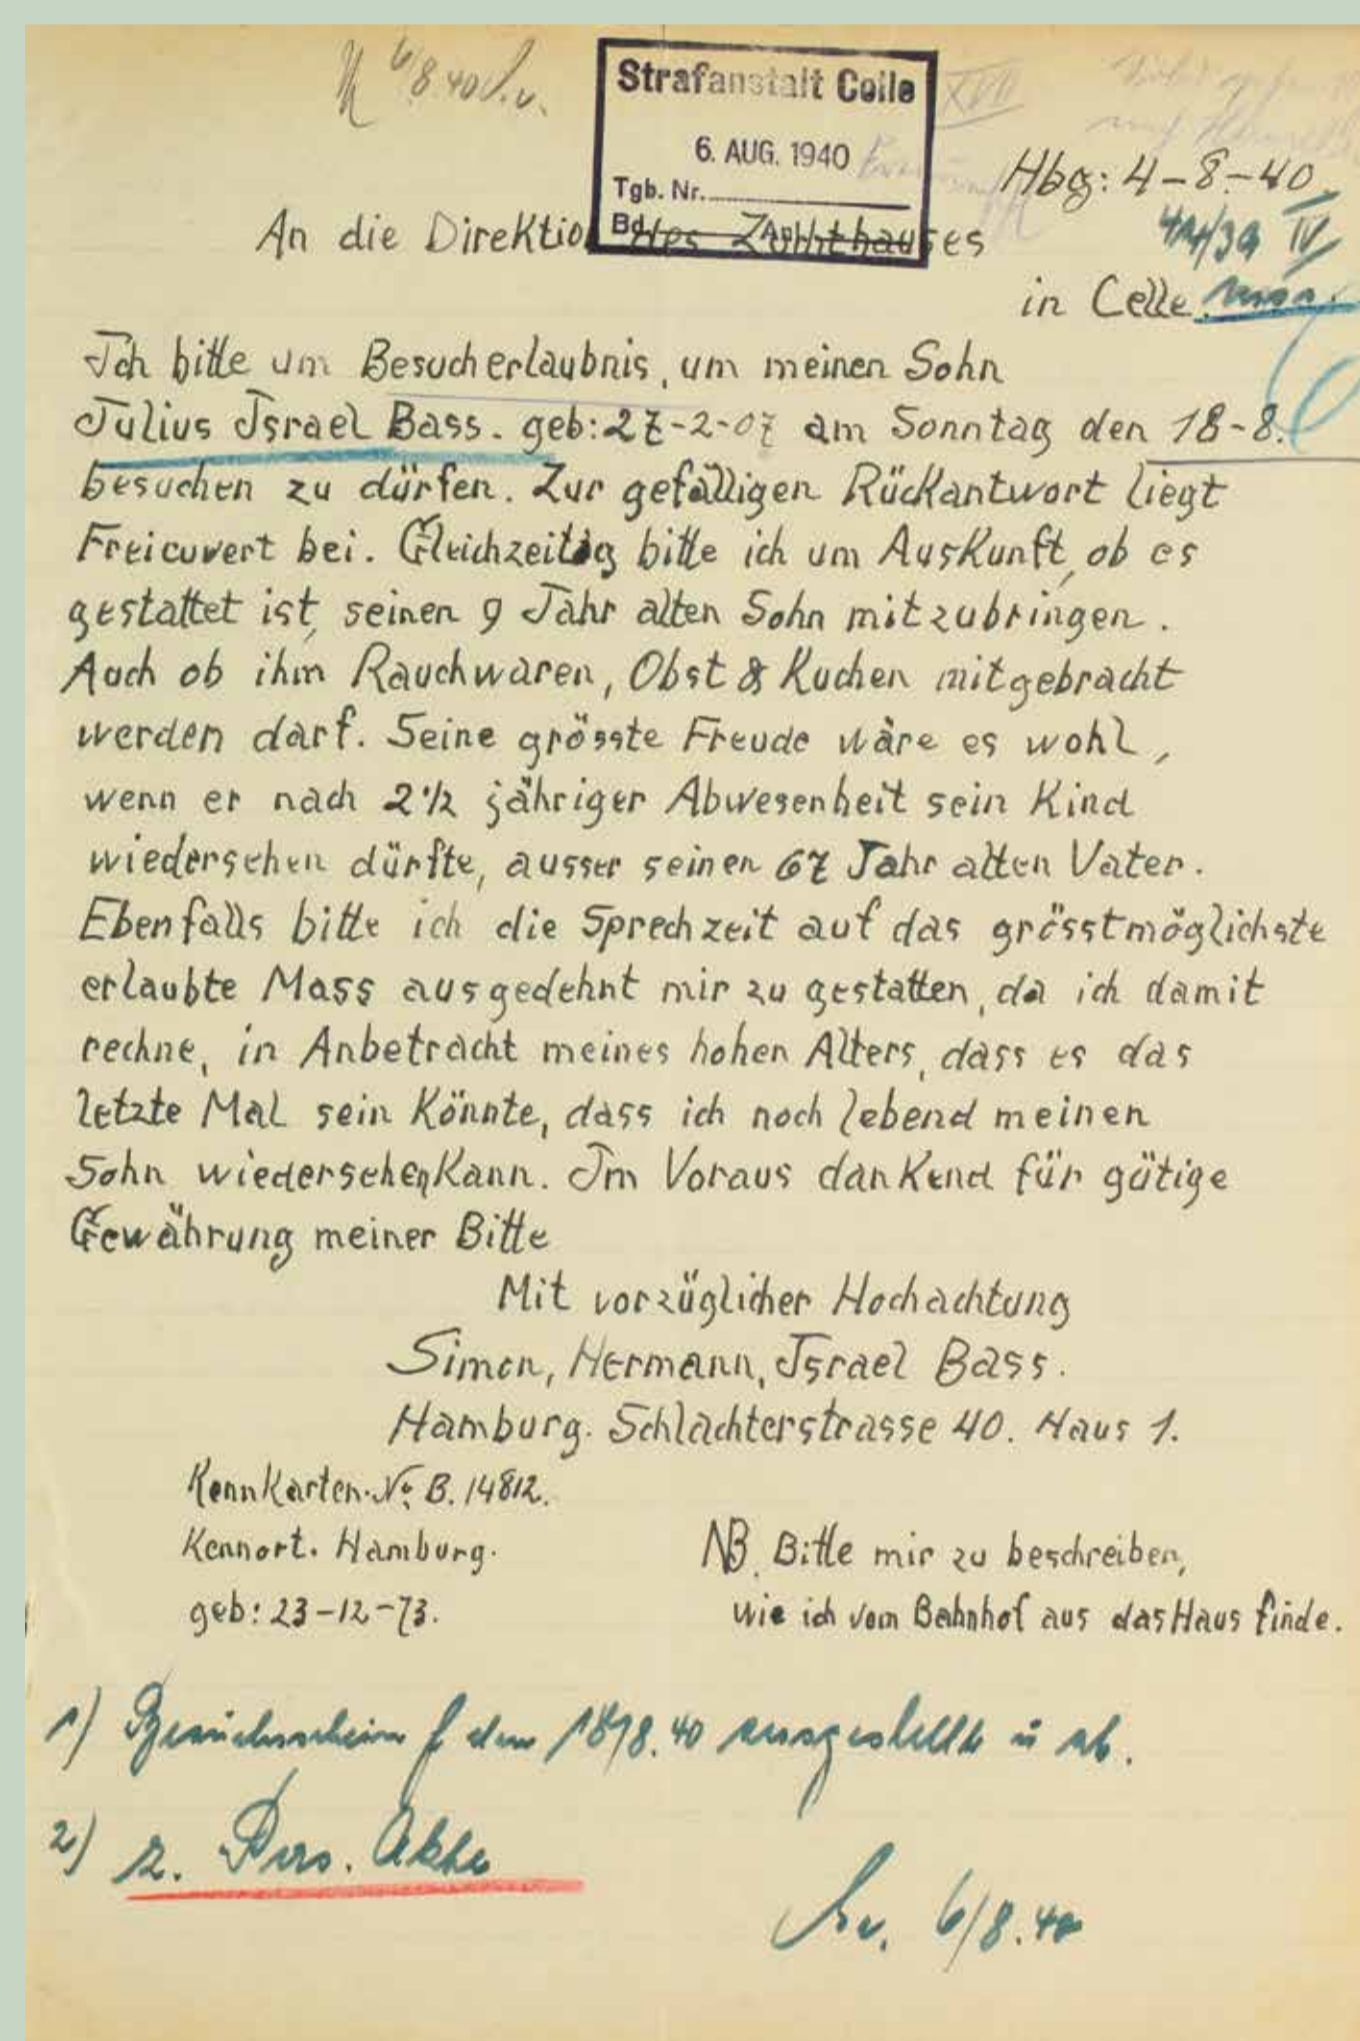 6/8.40
Strafanstalt Celle
6. AUG. 1940
Tgb. Nr.
Bd. Anl.
XVII
Hbg: 4-8-40
An die Direktion des Zuchthauses
44/39 IV
in Celle
Ich bitte um Besucherlaubnis, um meinen Sohn
Julius Israel Bass. geb: 27-2-07 am Sonntag den 18-8.
besuchen zu dürfen. Zur gefälligen Rückantwort liegt
Freicuvert bei. Gleichzeitig bitte ich um Auskunft, ob es
gestattet ist, seinen 9 Jahr alten Sohn mitzubringen.
Auch ob ihm Rauchwaren, Obst & Kuchen mitgebracht
werden darf. Seine grösste Freude wäre es wohl,
wenn er nach 2 1/2 jähriger Abwesenheit sein Kind
wiedersehen dürfte, ausser seinen 67 Jahr alten Vater.
Ebenfalls bitte ich die Sprechzeit auf das grösstmöglichste
erlaubte Mass ausgedehnt mir zu gestatten, da ich damit
rechne, in Anbetracht meines hohen Alters, dass es das
letzte Mal sein könnte, dass ich noch lebend meinen
Sohn wiedersehen kann. Im Voraus dankend für gütige
Gewährung meiner Bitte
Mit vorzüglicher Hochachtung
Simon, Hermann, Israel Bass.
Hamburg. Schlachterstrasse 40. Haus 1.
Kennkarten-No: B. 14812.
Kennort. Hamburg.
geb: 23-12-73.
NB. Bitte mir zu beschreiben,
wie ich vom Bahnhof aus das Haus finde.
1) Besuchsschein f. den 18/8.40 ausgestellt u ab.
2) z. Pers. Akte
6/8.40